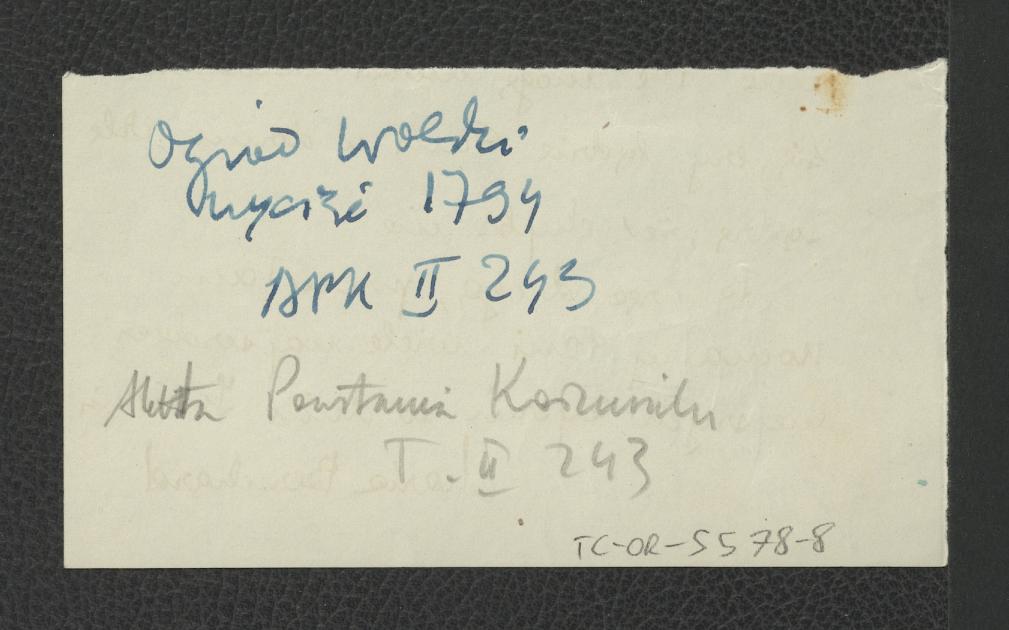 Ogród Wolski
1794
APK II 243
Akta Powstania Kościuszki
T. II 243
TC-OR-5578-8